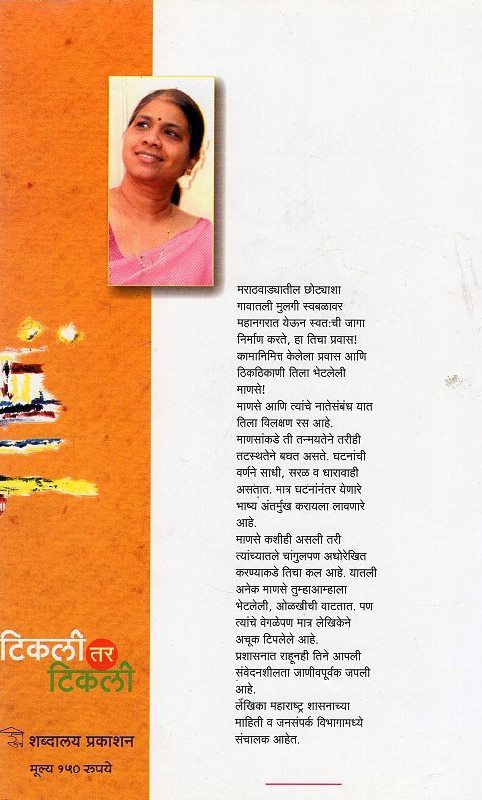 मराठवाड्यातील छोट्याशा
गावातली मुलगी स्वबळावर
महानगरात येऊन स्वतःची जागा
निर्माण करते, हा तिचा प्रवास!
कामानिमित्त केलेला प्रवास आणि
ठिकठिकाणी तिला भेटलेली
माणसे!
माणसे आणि त्यांचे नातेसंबंध यात
तिला विलक्षण रस आहे.
माणसांकडे ती तन्मयतेने तरीही
तटस्थतेने बघत असते. घटनांची
वर्णने साधी, सरळ व धारावाही
असतात. मात्र घटनांनंतर येणारे
भाष्य अंतर्मुख करायला लावणारे
आहे.
माणसे कशीही असली तरी
त्यांच्यातले चांगुलपण अधोरेखित
करण्याकडे तिचा कल आहे. यातली
अनेक माणसे तुम्हाआम्हाला
भेटलेली, ओळखीची वाटतात. पण
त्यांचे वेगळेपण मात्र लेखिकेने
अचूक टिपलेले आहे.
प्रशासनात राहूनही तिने आपली
संवेदनशीलता जाणीवपूर्वक जपली
आहे.
लेखिका महाराष्ट्र शासनाच्या
माहिती व जनसंपर्क विभागामध्ये
संचालक आहेत.
टिकली तर
टिकली
शब्दालय प्रकाशन
मूल्य १५० रुपये